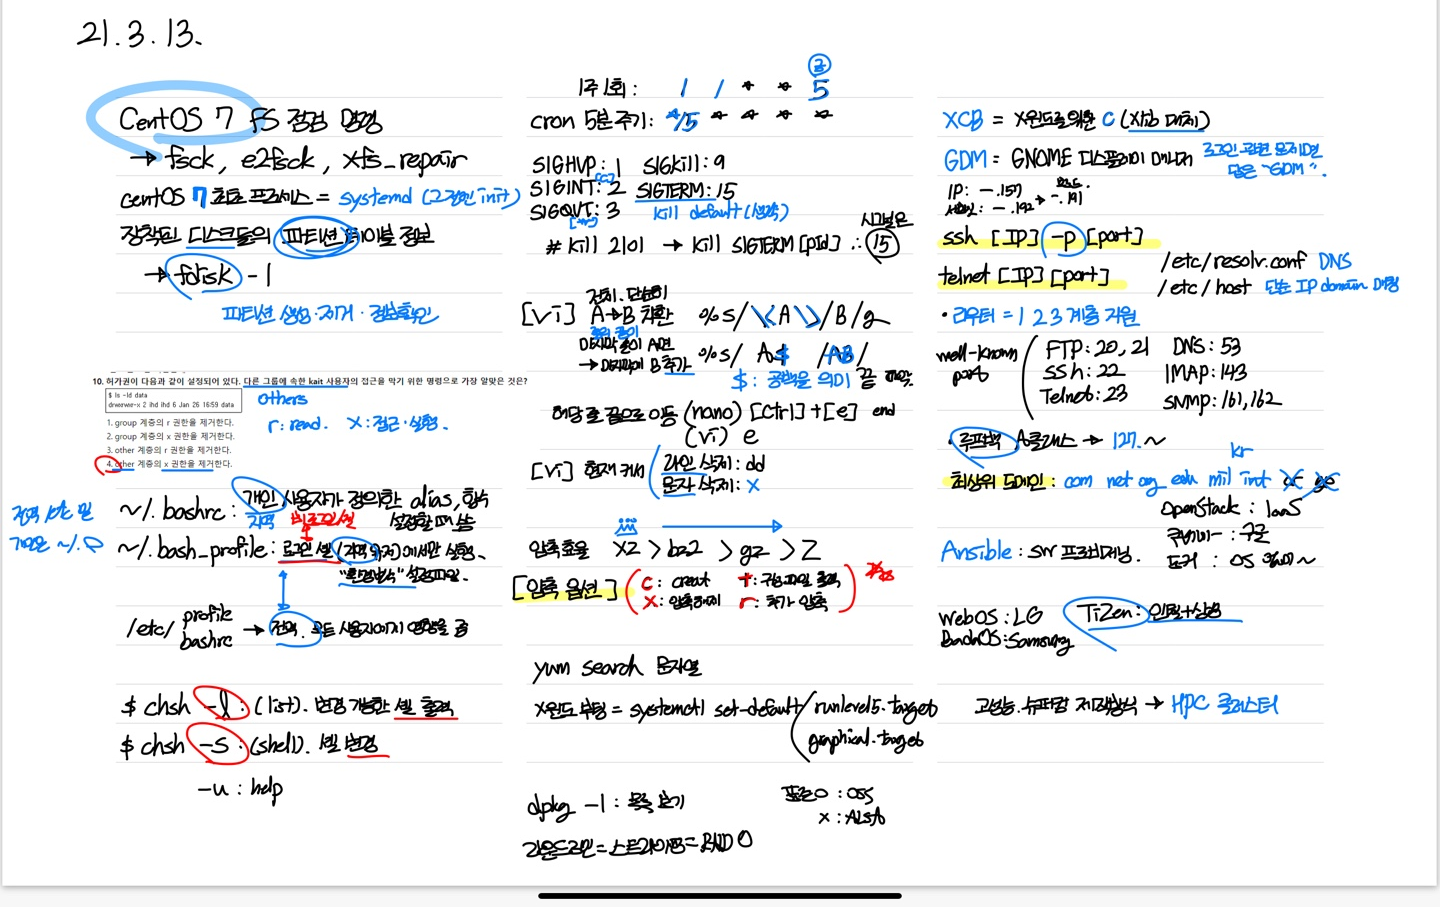 21.3.13.
CentOS 7 FS 점검 명령
→ fsck, e2fsck, xfs_repair
centOS 7 최초 프로세스 = systemd (그전엔 init)
장착된 디스크들의 파티션 테이블 정보
→ fdisk -l
파티션 생성·제거·정보확인
10. 허가권이 다음과 같이 설정되어 있다. 다른 그룹에 속한 kait 사용자의 접근을 막기 위한 명령으로 가장 알맞은 것은?
$ ls -ld data
drwxrwxr-x 2 ihd ihd 6 Jan 26 16:59 data
others
r: read. x: 접근·실행.
1. group 계층의 r 권한을 제거한다.
2. group 계층의 x 권한을 제거한다.
3. other 계층의 r 권한을 제거한다.
4. other 계층의 x 권한을 제거한다.
~/.bashrc: 개인 사용자가 정의한 alias, 함수
지역 비로그인셸 설정할 때 씀
~/.bash_profile: 로그인 셸 (지역)에서만 실행.
"환경변수" 설정파일.
/etc/ profile
bashrc → 전역. 모든 사용자에게 영향을 줌
$ chsh -l : (list). 변경 가능한 셸 출력
$ chsh -s : (shell). 셸 변경
-u : help
1주 1회: 1 1 * * 5
금
cron 5분 주기: */5 * * * *
SIGHUP: 1 SIGkill: 9
SIGINT: 2 SIGTERM: 15
SIGQUT: 3 kill default (생략)
# kill 2101 → kill SIGTERM [pid] ∴ 시그널은 15
[vi] 전체. 단순히
A→B 치환 %s/\<A\>/B/g
마지막 줄이 A면
→ 마지막에 B 추가 %s/ A$ /AB/
$: 공백을 의미 끝
해당 줄 끝으로 이동 (nano) [ctrl]+[e] end
(vi) e
[vi] 현재 커서 라인 삭제: dd
문자 삭제: x
압축효율 xz > bz2 > gz > Z
[압축 옵션] c: creat t: 구성파일 출력
x: 압축해제 r: 추가 압축
yum search 문자열
x윈도 부팅 = systemctl set-default runlevel5.target
graphical.target
dpkg -l : 목록 보기
프로O : OSS
X : ALSA
라운드로빈 = 스트라이핑 = RAID 0
XCB = X윈도를 위한 C (Xlib 대체)
GDM = GNOME 디스플레이 매니저
로그인 관련 문제면
답은 "GDM".
IP: -.157
-.192 → -.191
ssh [IP] -p [port]
telnet [IP] [port]
/etc/resolv.conf DNS
/etc/host 단순 IP domain 매핑
· 라우터 = 1 2 3 계층 지원
well-known port
FTP: 20, 21 DNS: 53
SSh: 22 IMAP: 143
Telnet: 23 SNMP: 161, 162
· 루프백 A클래스 → 127. ~
kr
최상위 도메인: com net org edu mil int
OpenStack : IaaS
쿠버네티스 : 구글
Ansible : SW 프로비저닝.
도커 : OS ~
WebOS : LG
BadaOS : Samsung
TiZen: 인텔+삼성
고성능. 슈퍼컴 제작방식 → HPC 클러스터